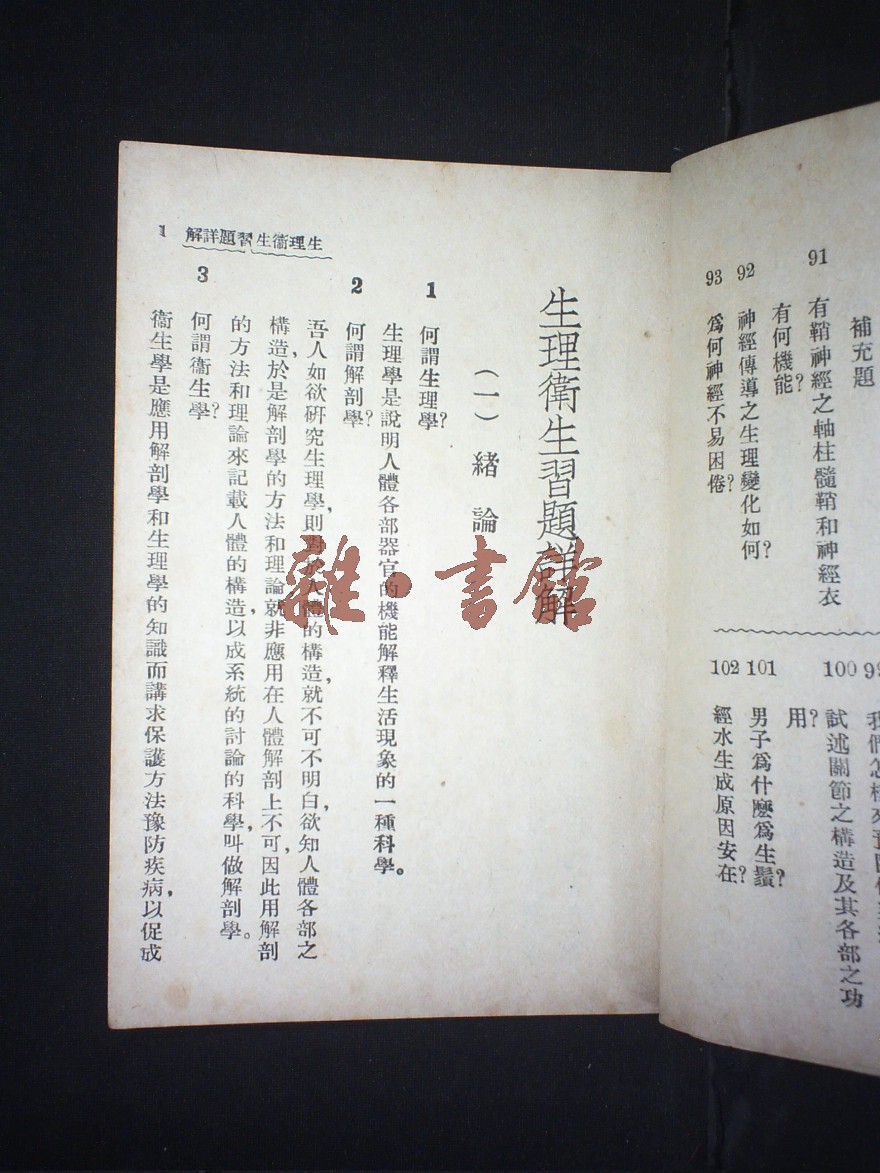 補充題
91 有鞘神經之軸柱髓鞘和神經衣
有何機能?
92 神經傳導之生理變化如何?
93 爲何神經不易困倦?
100 試述關節之構造及其各部之功
用?
101 男子爲什麽爲生鬚?
102 經水生成原因安在?
生理衞生習題詳解
(一) 緒論
1 何謂生理學?
生理學是說明人體各部器官的機能解釋生活現象的一種科學。
2 何謂解剖學?
吾人如欲研究生理學,則對於人體的構造,就不可不明白,欲知人體各部之
構造,於是解剖學的方法和理論就非應用在人體解剖上不可,因此用解剖
的方法和理論來記載人體的構造,以成系統的討論的科學,叫做解剖學。
3 何謂衞生學?
衞生學是應用解剖學和生理學的知識而講求保護方法豫防疾病,以促成
解詳題習生衞理生 1
雜·書館